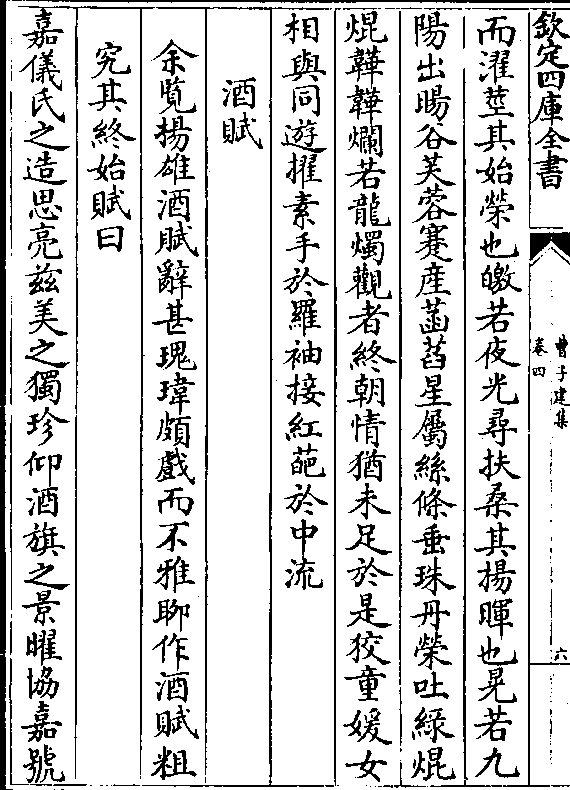 欽定四庫全書
曹子建集
卷四
六
而濯莖其始榮也皦若夜光尋扶桑其揚暉也晃若九
陽出暘谷芙蓉蹇産菡萏星屬絲條垂珠丹榮吐緑焜
焜韡韡爛若龍燭觀者終朝情猶未足於是狡童媛女
相與同遊擢素手於羅袖接紅葩於中流
酒賦
余覧揚雄酒賦辭甚瑰瑋頗戲而不雅聊作酒賦粗
究其終始賦曰
嘉儀氏之造思亮兹美之獨珍仰酒旗之景曜協嘉號